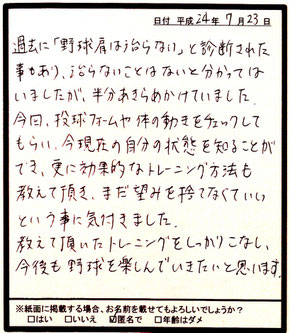 日付 平成 24年 7月 23日
過去に「野球肩は治らない」と診断された
事もあり、治らないことはないと分かっては
いましたが、半分あきらめかけていました。
今回、投球フォームや体の動きをチェックして
もらい、今現在の自分の状態を知ることが
でき、更に効果的なトレーニング方法も
教えて頂き、まだ望みを捨てなくていい
という事に気付きました。
教えて頂いたトレーニングをしっかりこなし、
今後も野球を楽しんでいきたいと思います。
※紙面に掲載する場合、お名前を載せてもよろしいでしょうか?
□はい □いいえ ☑匿名で □年齢はダメ